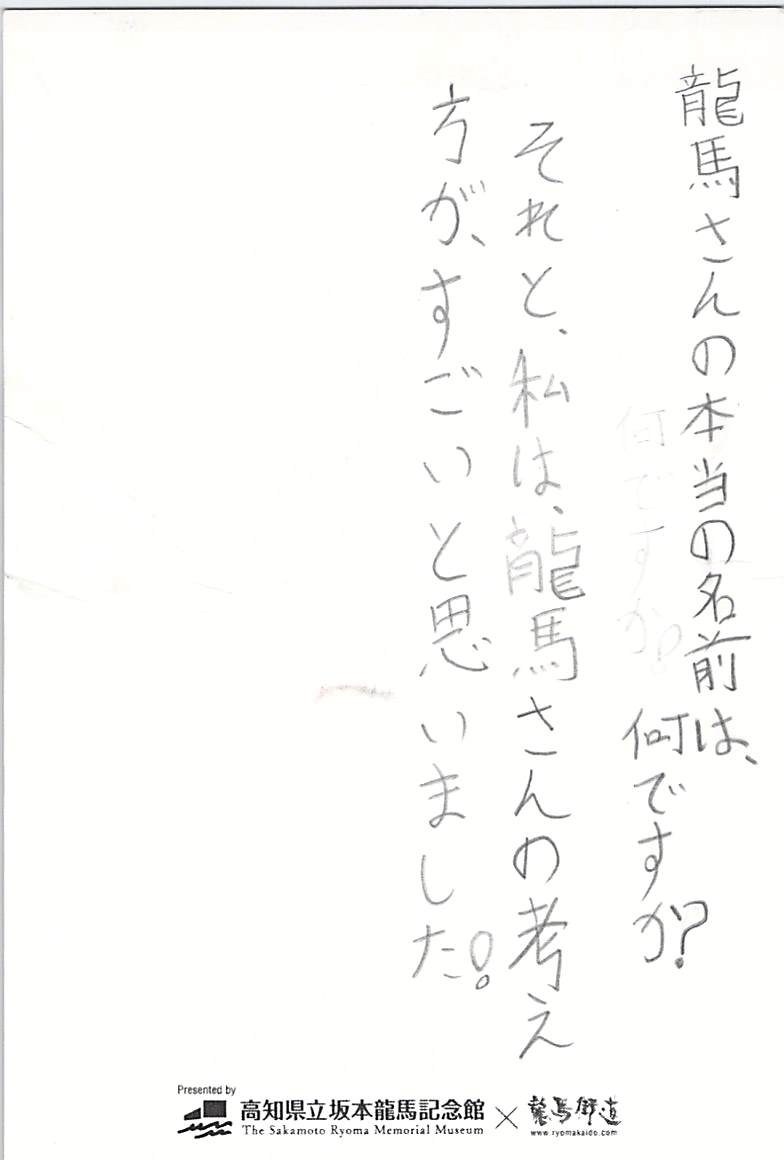 龍馬さんの本当の名前は、
何ですか?
それと、私は、龍馬さんの考え
方が、すごいと思いました!
Presented by
高知県立坂本龍馬記念館
The Sakamoto Ryoma Memorial Museum
×
龍馬街道
www.ryomakaido.com